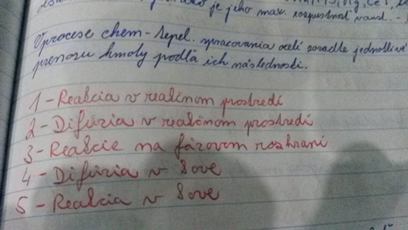 je jeho max. rozpustnosť
V procese chem-tepel. spracovania ocelí zoraďte jednotlivé
prenosu hmoty podľa ich následnosti.
1 - Reakcia v reakčnom prostredí
2 - Difúzia v reakčnom prostredí
3 - Reakcie na fázovom rozhraní
4 - Difúzia v kove
5 - Reakcia v kove